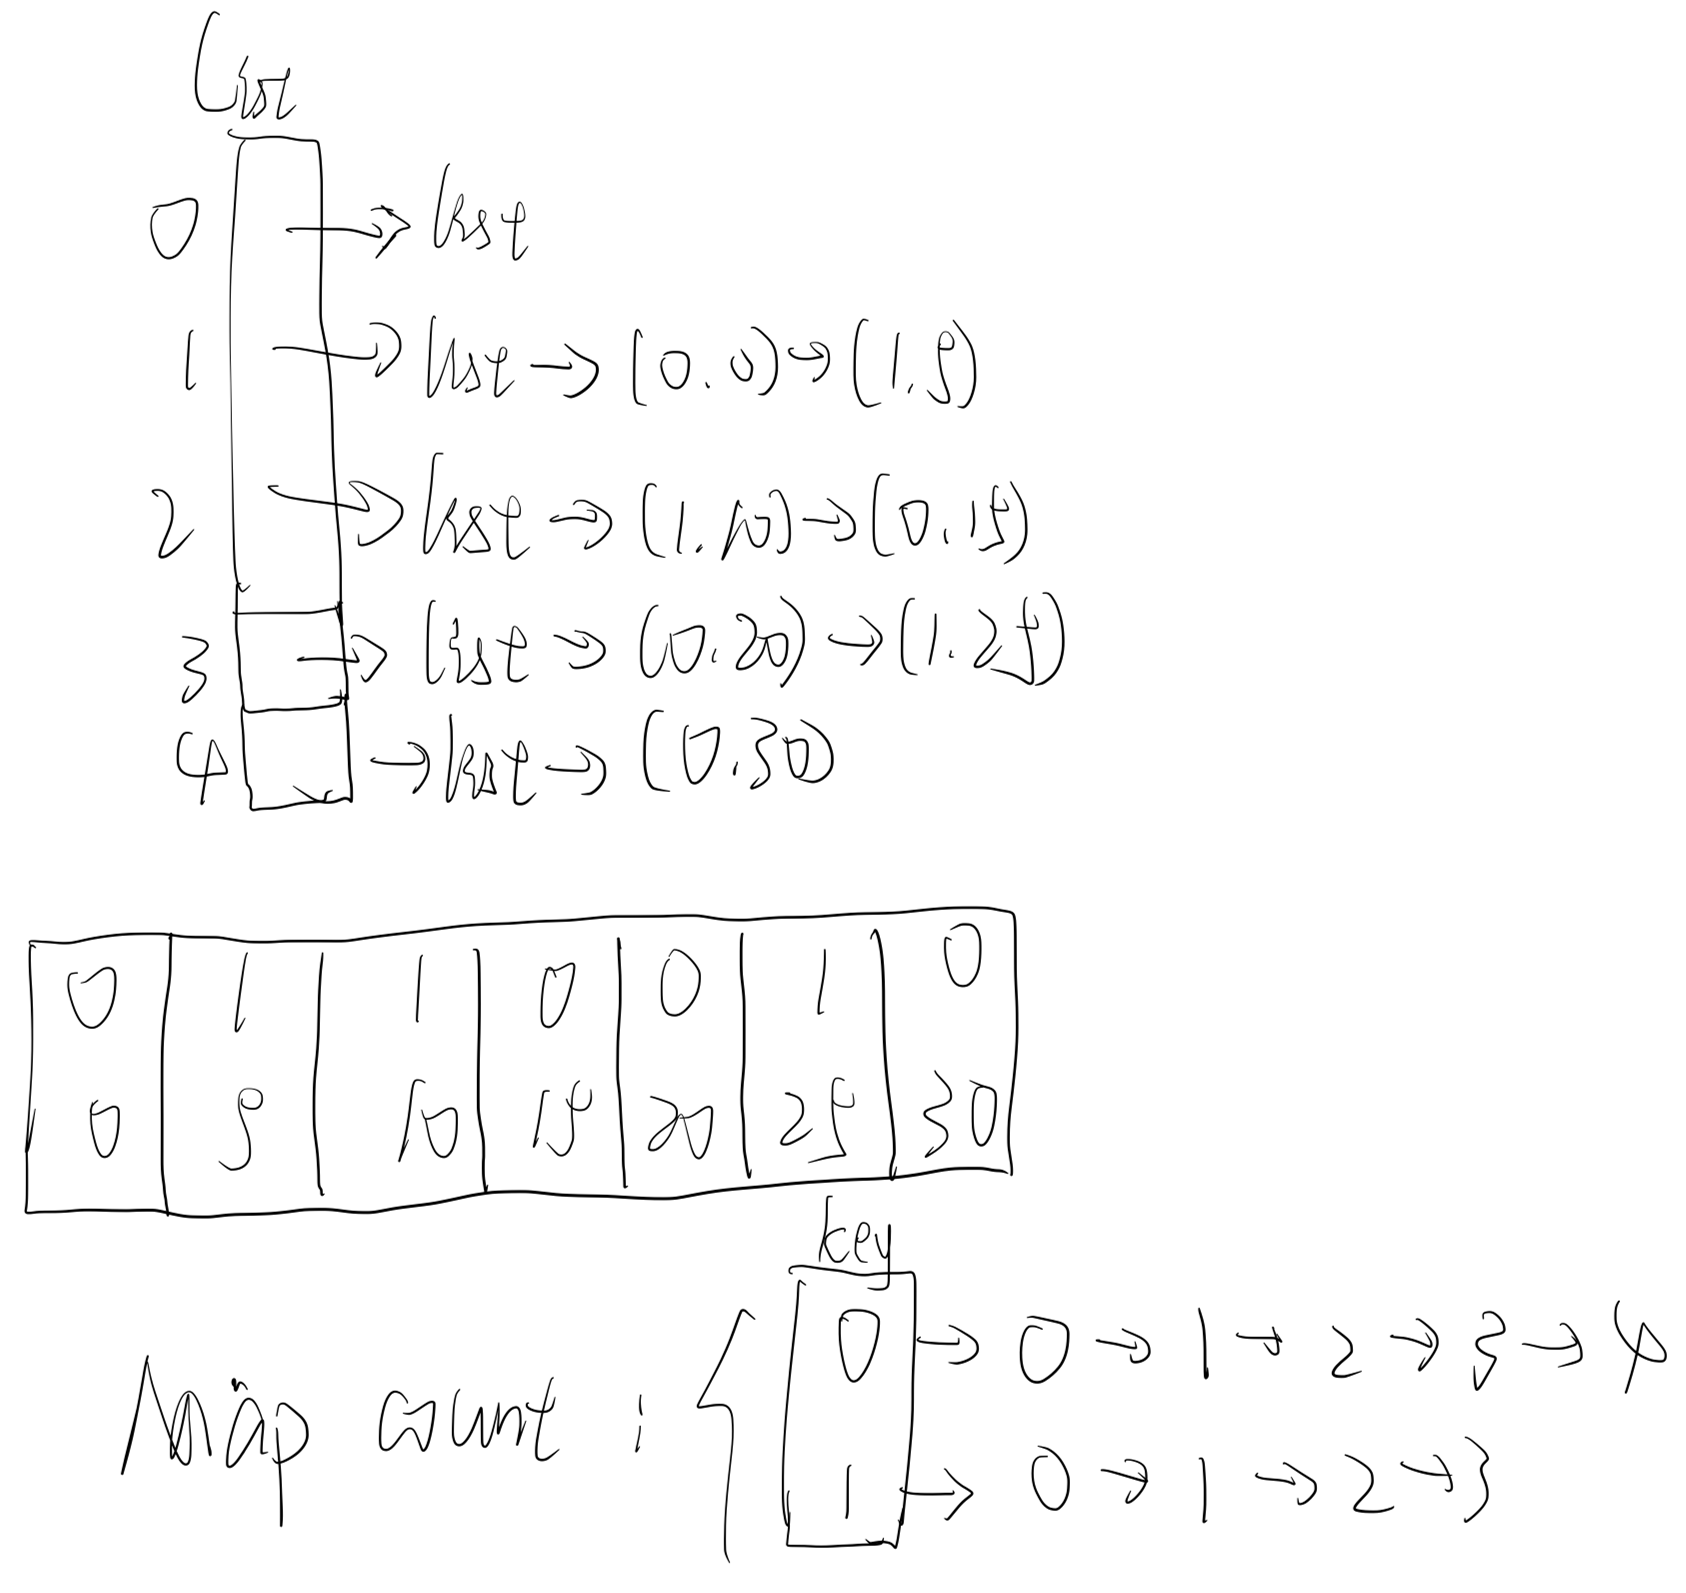 List
0 → list
1 → list → (0.0) → (1.5)
2 → list → (1.10) → (0.15)
3 → list → (0.20) → (1.25)
4 → list → (0.30)
0 1 1 0 0 1 0
0 5 10 15 20 25 30
key
0 → 0 → 1 → 2 → 3 → 4
Map count :
1 → 0 → 1 → 2 → 3